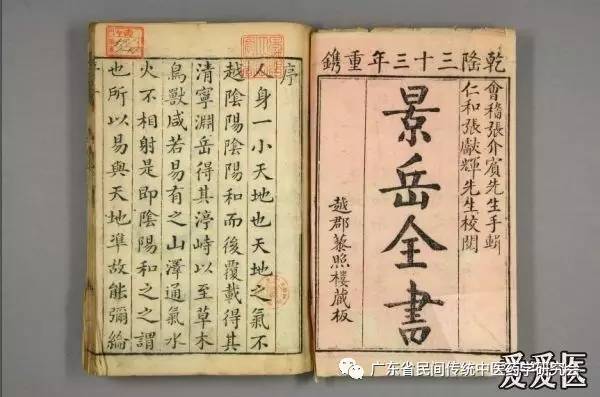 乾隆三十三年重鐫
會稽張介賓先生手輯
仁和張獻輝先生校閱
景岳全書
越郡藜照樓藏板
序
人身一小天地也天地之氣不
越陰陽陰陽和而後覆載得其
清寧淵岳得其渟峙以至草木
鳥獸咸若易有之山澤通氣水
火不相射是即陰陽和之之謂
也所以易與天地準故能彌綸
广东省民间传统中医药学研究会
爱爱医